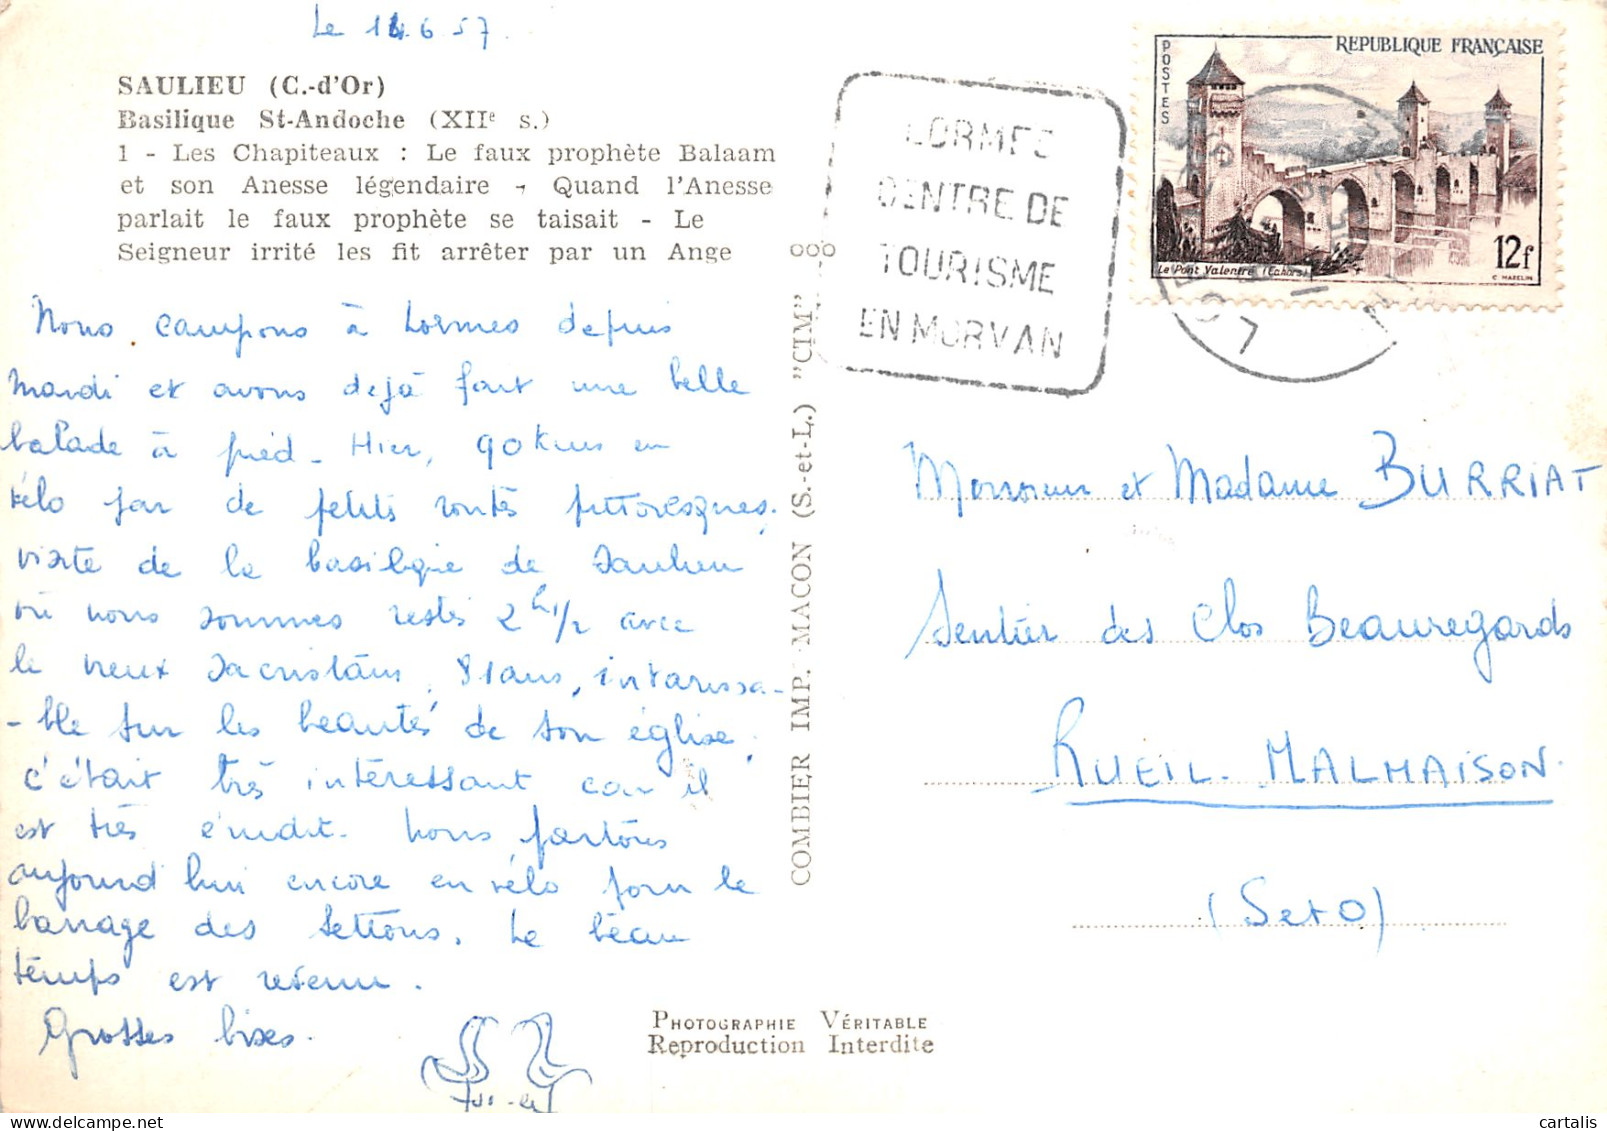 Le 14.6.57.
SAULIEU (C.-d'Or)
Basilique St-Andoche (XIIe s.)
1 - Les Chapiteaux : Le faux prophète Balaam
et son Anesse légendaire - Quand l'Anesse
parlait le faux prophète se taisait - Le
Seigneur irrité les fit arrêter par un Ange
Nous campons à Lormes depuis
mardi et avons dejà fait une belle
balade à pied - Hier, 90 Kms en
vélo par de petits routes pittoresques,
visite de la basilique de Saulieu
où nous sommes restés 2h 1/2 avec
le vieux sacristain, 81 ans, intarissa-
-ble sur les beautés de son église,
c'était très intéressant car il
est très érudit. Nous partons
aujourd'hui encore en vélo pour le
barrage des Settons. Le beau
temps est revenu.
Grosses bises.
COMBIER IMP. MACON (S.-et-L.) "CIM"
LORMES
CENTRE DE
TOURISME
EN MORVAN
POSTES
REPUBLIQUE FRANÇAISE
Le Pont Valentré (Cahors)
12f
C. MAZELIN
Monsieur et Madame BURRIAT
Sentier des Clos Beauregards
RUEIL-MALMAISON.
(Set O)
PHOTOGRAPHIE VÉRITABLE
Reproduction Interdite
cartalis